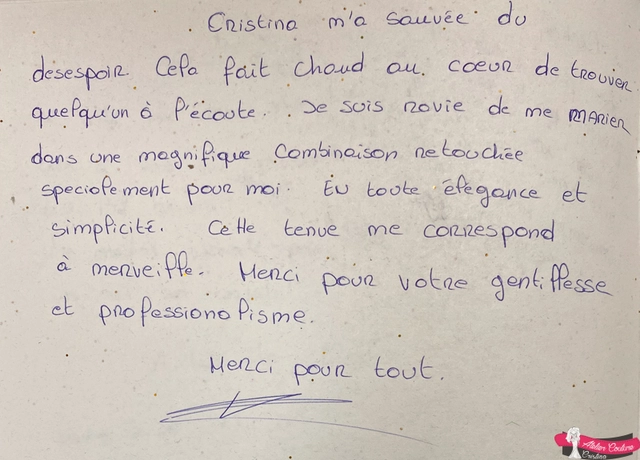 Cristina m'a sauvée du
désespoir. Cela fait chaud au coeur de trouver
quelqu'un à l'écoute. Je suis ravie de me marier
dans une magnifique combinaison retouchée
specialement pour moi. En toute élégance et
simplicité. Cette tenue me correspond
à merveille. Merci pour votre gentillesse
et professionalisme.
Merci pour tout.
Atelier Couture
Cristina